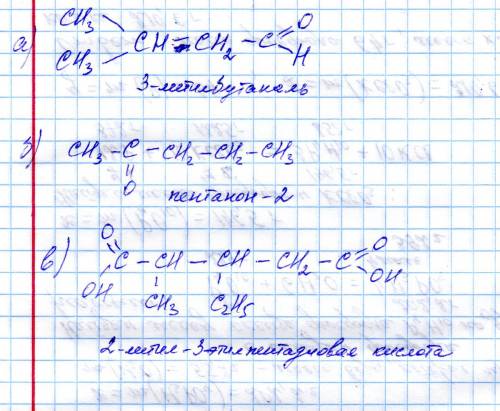 а) CH₃ CH₃ CH=CH₂—C O H
3-метилбутаналь
б) CH₃—C—CH₂—CH₂—CH₃
O
пентанон-2
в) O OH C—CH—CH—CH₂—C O OH
CH₃ C₂H₅
2-метил-3-этилпентадиовая кислота